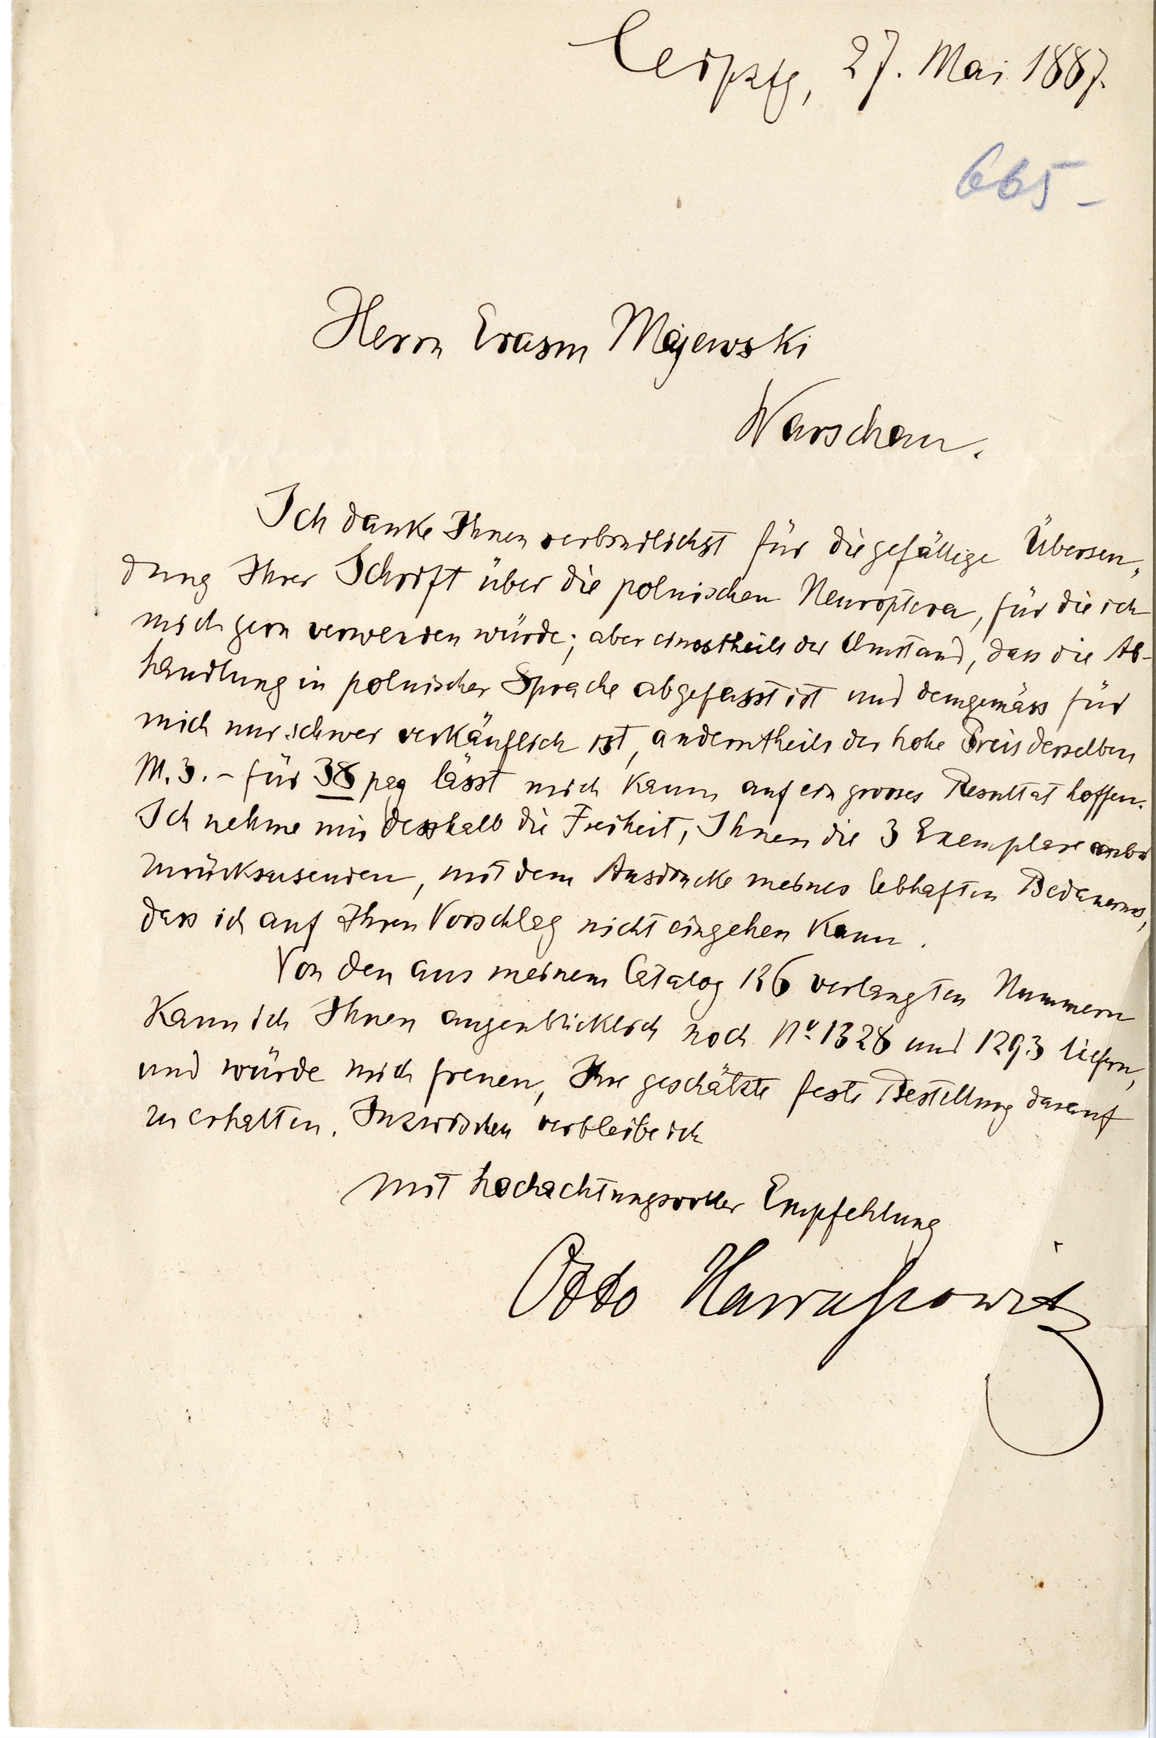 Leipzig, 27. Mai 1887.
665-
Herrn Erasm Majewski
Warschau.
Ich danke Ihnen verbindlichst für die gefällige Übersen-
dung Ihrer Schrift über die polnischen Neuroptera, für die ich
mich gern verwenden würde; aber einestheils der Umstand, dass die Ab-
handlung in polnischer Sprache abgefasst ist und demgemäss für
mich nur schwer verkäuflich ist, anderntheils der hohe Preis derselben
M. 3.- für 38 pag lässt mich kaum auf ein grosses Resultat hoffen.
Ich nehme mir desshalb die Freiheit, Ihnen die 3 Exemplare anbei
zurückzusenden, mit dem Ausdrucke meines lebhaften Bedauerns,
dass ich auf Ihren Vorschlag nicht eingehen kann.
Von den aus meinem Catalog 136 verlangten Nummern
kann ich Ihnen augenblicklich noch No. 1328 und 1293 liefern,
und würde mich freuen, Ihre geschätzte feste Bestellung darauf
zu erhalten. Inzwischen verbleibe ich
mit hochachtungsvoller Empfehlung
Otto Harrassowitz